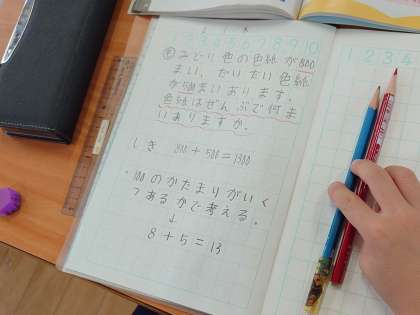 1 2 3 4 5 6 7 8 9 10
㋲みどり色の色紙が800
まい、だいだい色の色紙
が500まいあります。
色紙はぜんぶで何ま
いありますか。
しき 800+500=1300
・100のかたまりがいく
つあるかで考える。
↓
8+5=13
1 2 3 4